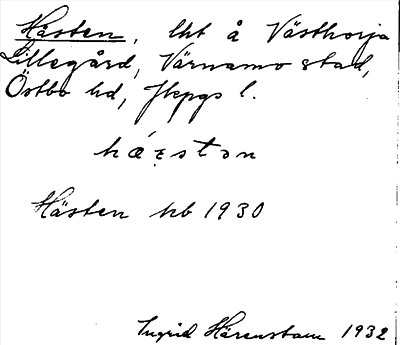 Hästen, lht å Västhorja
Lillegård, Värnamo stad,
Östbo hd, Jkpgs l.
hæ̨stən
Hästen hb 1930
Ingrid Härenstam 1932